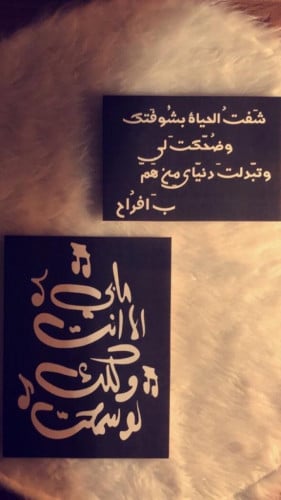 شفت الحياة بشوفتك
وضحكت لي
وتبدلت دنياي من هم
ب افراح
مابي
الا انت
وكلك
لو سمحت